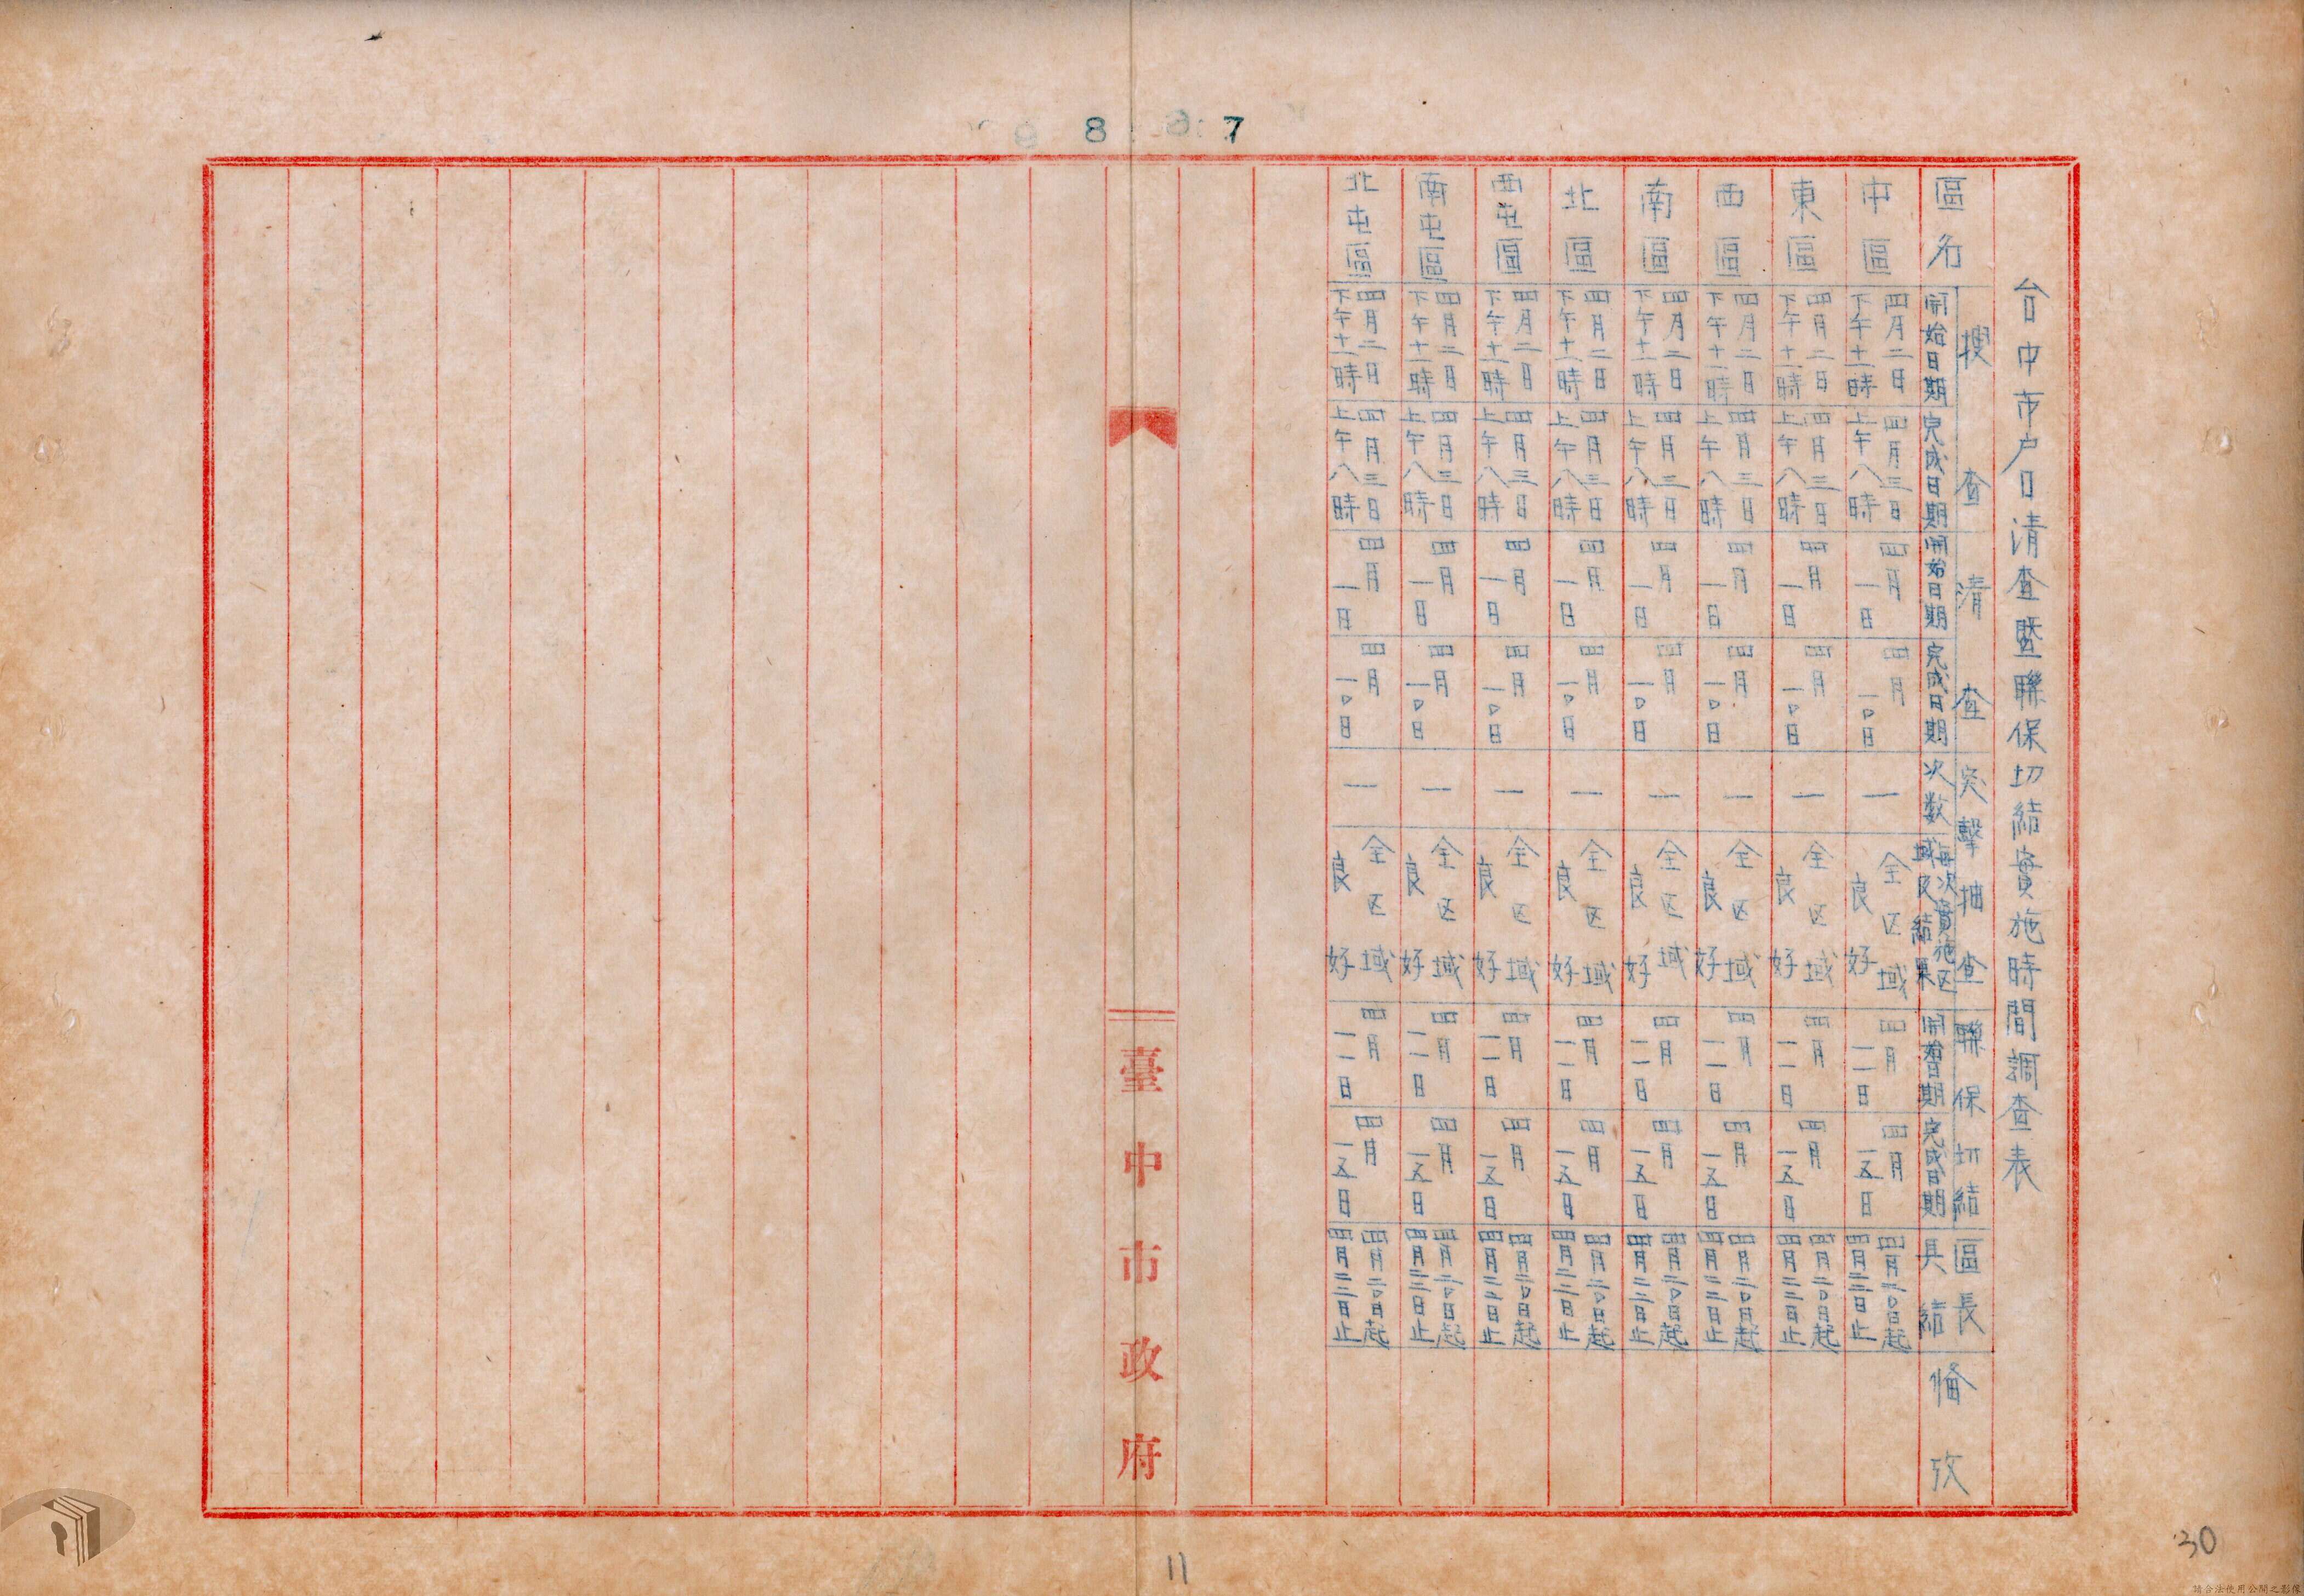 台中市戶口清查暨聯保切結實施時間調查表
區名 搜查 開始日期 完成日期 清查 開始日期 完成日期 突擊抽查 次数 每次實施区域及結果 聯保切結 開始日期 完成日期 區長具結 備攷
中區 四月二日下午十一時 四月三日上午八時 四月一日 四月一〇日 一 全区域良好 四月一一日 四月一五日 四月二〇日起四月二三日止
東區 四月二日下午十一時 四月三日上午八時 四月一日 四月一〇日 一 全区域良好 四月一一日 四月一五日 四月二〇日起四月二三日止
西區 四月二日下午十一時 四月三日上午八時 四月一日 四月一〇日 一 全区域良好 四月一一日 四月一五日 四月二〇日起四月二三日止
南區 四月二日下午十一時 四月三日上午八時 四月一日 四月一〇日 一 全区域良好 四月一一日 四月一五日 四月二〇日起四月二三日止
北區 四月二日下午十一時 四月三日上午八時 四月一日 四月一〇日 一 全区域良好 四月一一日 四月一五日 四月二〇日起四月二三日止
西屯區 四月二日下午十一時 四月三日上午八時 四月一日 四月一〇日 一 全区域良好 四月一一日 四月一五日 四月二〇日起四月二三日止
南屯區 四月二日下午十一時 四月三日上午八時 四月一日 四月一〇日 一 全区域良好 四月一一日 四月一五日 四月二〇日起四月二三日止
北屯區 四月二日下午十一時 四月三日上午八時 四月一日 四月一〇日 一 全区域良好 四月一一日 四月一五日 四月二〇日起四月二三日止
臺中市政府
7
8
11
30
請合法使用公開之影像